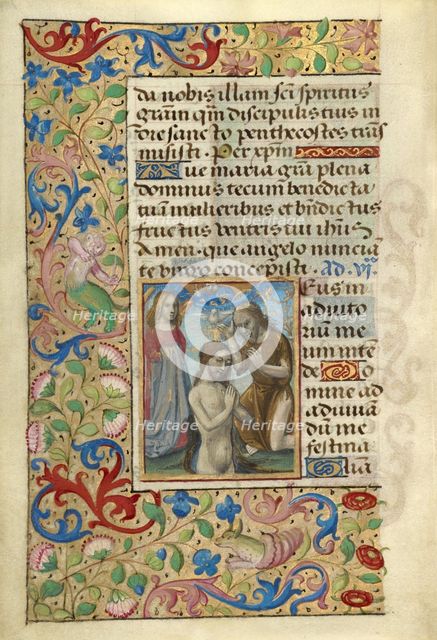 da nobis illam sci spiritus
gram qm discipulis tuis in
die sancto penthecostes trās
misisti. Per xpm
Aue maria gra plena
dominus tecum benedicta
tu in mulieribus et bndictus
fructus ventris tui ihus
Amen. que angelo nuncia
te virgo concepisti. ad. vi
Deus in
adiuto
rium me
um inten
de Do
mine ad
adiuuā
dum me
festina
Glia
Heritage
Images